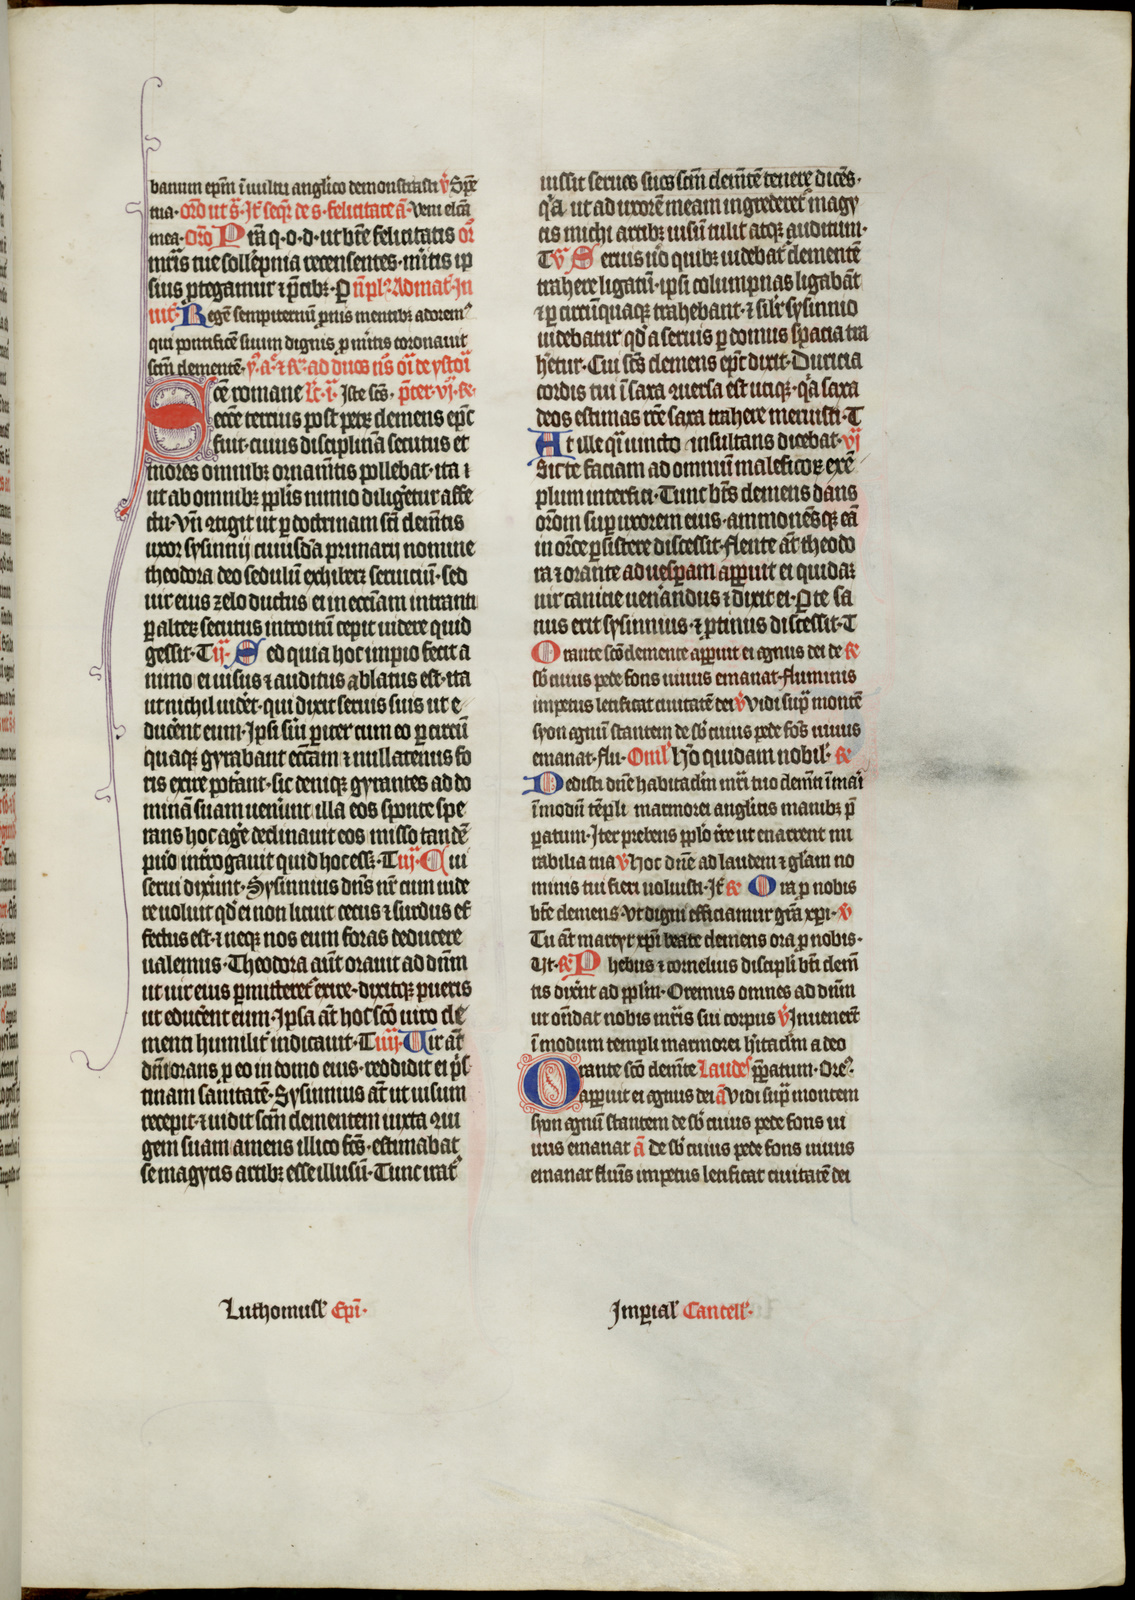 banum epm̄ ī vultu anglico demonstrasti v̄ Spe
tua· oro ut s̄· It̄ seqr̄ de s· felicitate a᷑· Veni elcā
mea· Oro Pr̄a q· o· d· ut bt̄e felicitatis or̄
mr̄is tue sollēpnia recensentes· mr̄itis ip
sius ꝓtegamur ⁊ p̄cibꝫ· P nr̄ pl̄ꝰ Ad mat̄· In
uit̄· Regē sempiternū pronis mentibꝫ adoremꝰ
qui pontificē suum dignis ꝓ mr̄itis coronauit
scm̄ clementē·
Sce romane lc̄· i᷑· Iste scs̄·
eccē tercius post petrꝫ clemens epc̄
fuit· cuius disciplinā secutus et
mores omnibꝫ ornam̄tis pollebat· ita ⁊
ut ab omnibꝫ pplis nimio diligeretur affe
ctu· Vn̄ ꝯtigit ut ꝑ doctrinam scī clem̄tis
uxor sysinnij cuiusdā primarij nomine
theodora deo sedulū exhiberꝫ seruiciū· sed
uir eius zelo ductus ei in eccīam intranti
ꝑ alterꝫ secutus introitū cepit uidere quid
gessit· T ij· Sed quia hoc impio fecit a
nimo ei uisus ⁊ auditus ablatus est· ita
ut nichil uidēt· qui dixit seruis suis ut e
ducēnt eum· Ipsi sīn ꝑiter cum eo ꝑ circū
quaqꝫ gyrabant eccīam ⁊ nullatenus fo
ris exire potāt· sic deniqꝫ gyrantes ad do
minā suam uenēunt illa eos sponte spe
rans hoc agē declinauit eos misso tandē
puo introgauit quid hoc essꝫ· T iij· Qui
serui dixūnt· Sysinnius dn̄s nr̄ cum uide
re uoluit qd̄ ei non licuit cecus ⁊ surdus ef
fectus est· ⁊ neqꝫ nos eum foras deducere
ualemus· Theodora aūt orauit ad dnm̄
ut uir eius ꝑmitteretꝰ exire· dixitqꝫ pueris
ut educēnt eum· Ipsa āt hoc sco᷑ uiro cle
menti humilit̄ indicauit· T iiij· Vir āt
dnī orans ꝓ eo in domo eius· reddidit ei pris
tinam sanitatē· Sysinnius āt ut uisum
recepit· ⁊ uidit scm̄ clementem iuxta ꝯiu
gem suam amens illico fcs̄· estimabat
se magycis artibꝫ esse illusū· Tunc irat̄ꝰ
iussit seruos suos scm̄ clemētē tenere dicēs·
qꝛ̄a ut ad uxorē meam ingrederetꝰ magy
cis michi artibꝫ uisū tulit atqꝫ auditum·
T v̄ Serius uo᷑ quibꝫ uidebat̄ clementē
trahere ligatū· ipsi columpnas ligabāt
⁊ ꝑ circūquaqꝫ trahebant· ⁊ silr̄ sysinnio
uidebatur qd̄ a seruis ꝑ domus spacia tra
hētur· Cui scs̄ clemens epc̄ dixit· Duricia
cordis tui ī saxa ꝯuersa est utiqꝫ· qꝛ̄a saxa
deos estimas ēē saxa trahere meruisti· T
At ille qsi uincto insultans dicebat· vj
Sic te faciam ad omniū maleficoꝝ exē
plum interfici· Tunc bt̄s clemens dans
orōm supꝑ uxorem eius· ammonēsqꝫ eā
in orōe ꝑsistere discessit· flente āt theodo
ra ⁊ orante ad uespam apparuit ei quidaꝫ
uir canicie uenandus ⁊ dixit ei· P te sa
nus erit sysinnius· ⁊ ꝓtinus discessit· T
Orante sco᷑ clemente apparuit ei agnus dei de ꝶ
sb̄ cuius pede fons uiuus emanat· fluminis
impetus letificat ciuitatē dei v̄ Vidi supꝰ montē
syon agnū stantem de sb̄ cuius pede fōs uiuus
emanat· flu· Omlꝰ Ho᷑ quidam nobil̄· ꝶ
Dedisti dne᷑ habitaclm̄ mr̄i tuo clem̄ti ī mari
ī modū tēpli marmorei anglicis manibꝫ p̄
paratum· Iter prebens pplo᷑ tr̄e ut enarrent mi
rabilia tua v̄ Hoc dne᷑ ad laudem ⁊ glam̄ no
minis tui fieri uoluisti· It̄ ꝶ Ora ꝓ nobis
bt̄e clemens· Vt digni efficiamur grā xpī· v̄
Tu āt martyr xpī beate clemens ora ꝓ nobis·
Vt· ꝶ Phebus ⁊ cornelius discipli btī clem̄
tis dixnt ad pplm̄· Oremus omnes ad dnm̄
ut ondat nobis mr̄is sui corpus v̄ Invenert̄
ī modum templi marmorei hitaclm̄ a deo
Orante sco᷑ clemēte Laudeꝰ p̄paratum· Oreꝰ·
apparuit ei agnus dei a᷑ Vidi supꝰ montem
syon agnū stantem de sb̄ cuius pede fons ui
uus emanat a᷑ De sb̄ cuius pede fons uiuus
emanat flum̄s impetus letificat ciuitatē dei
Luthomuslꝰ Epī·
Imꝑialꝰ Cancellꝰ·